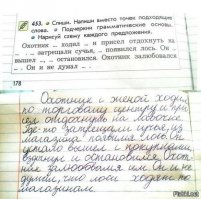 453. • Спиши. Напиши вместо точек подходящие
слова. • Подчеркни грамматические основы.
• Нарисуй схему каждого предложения.
Охотник ... ходил ... и присел отдохнуть на
... . ... затрещали сучья, .. появился лось. Он
вышел ..., .. остановился. Охотник залюбовался
... . Он и не думал ... .
178
Охотник с женой ходил
по торговому центру и при-
сел отдохнуть на лавочке.
Где-то затрещали сучья, из
магазина появился лось. Он
вышел и
и остановился. Охот-
ник залюбовался им. Он и не
думал, что лоси ходят по
магазинам.